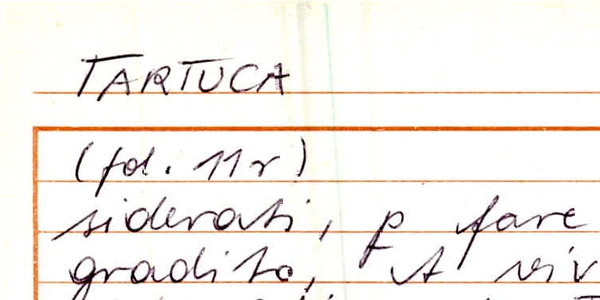 TARTUCA
(fol. 11r)
siderati, p fare
gradito, et viv